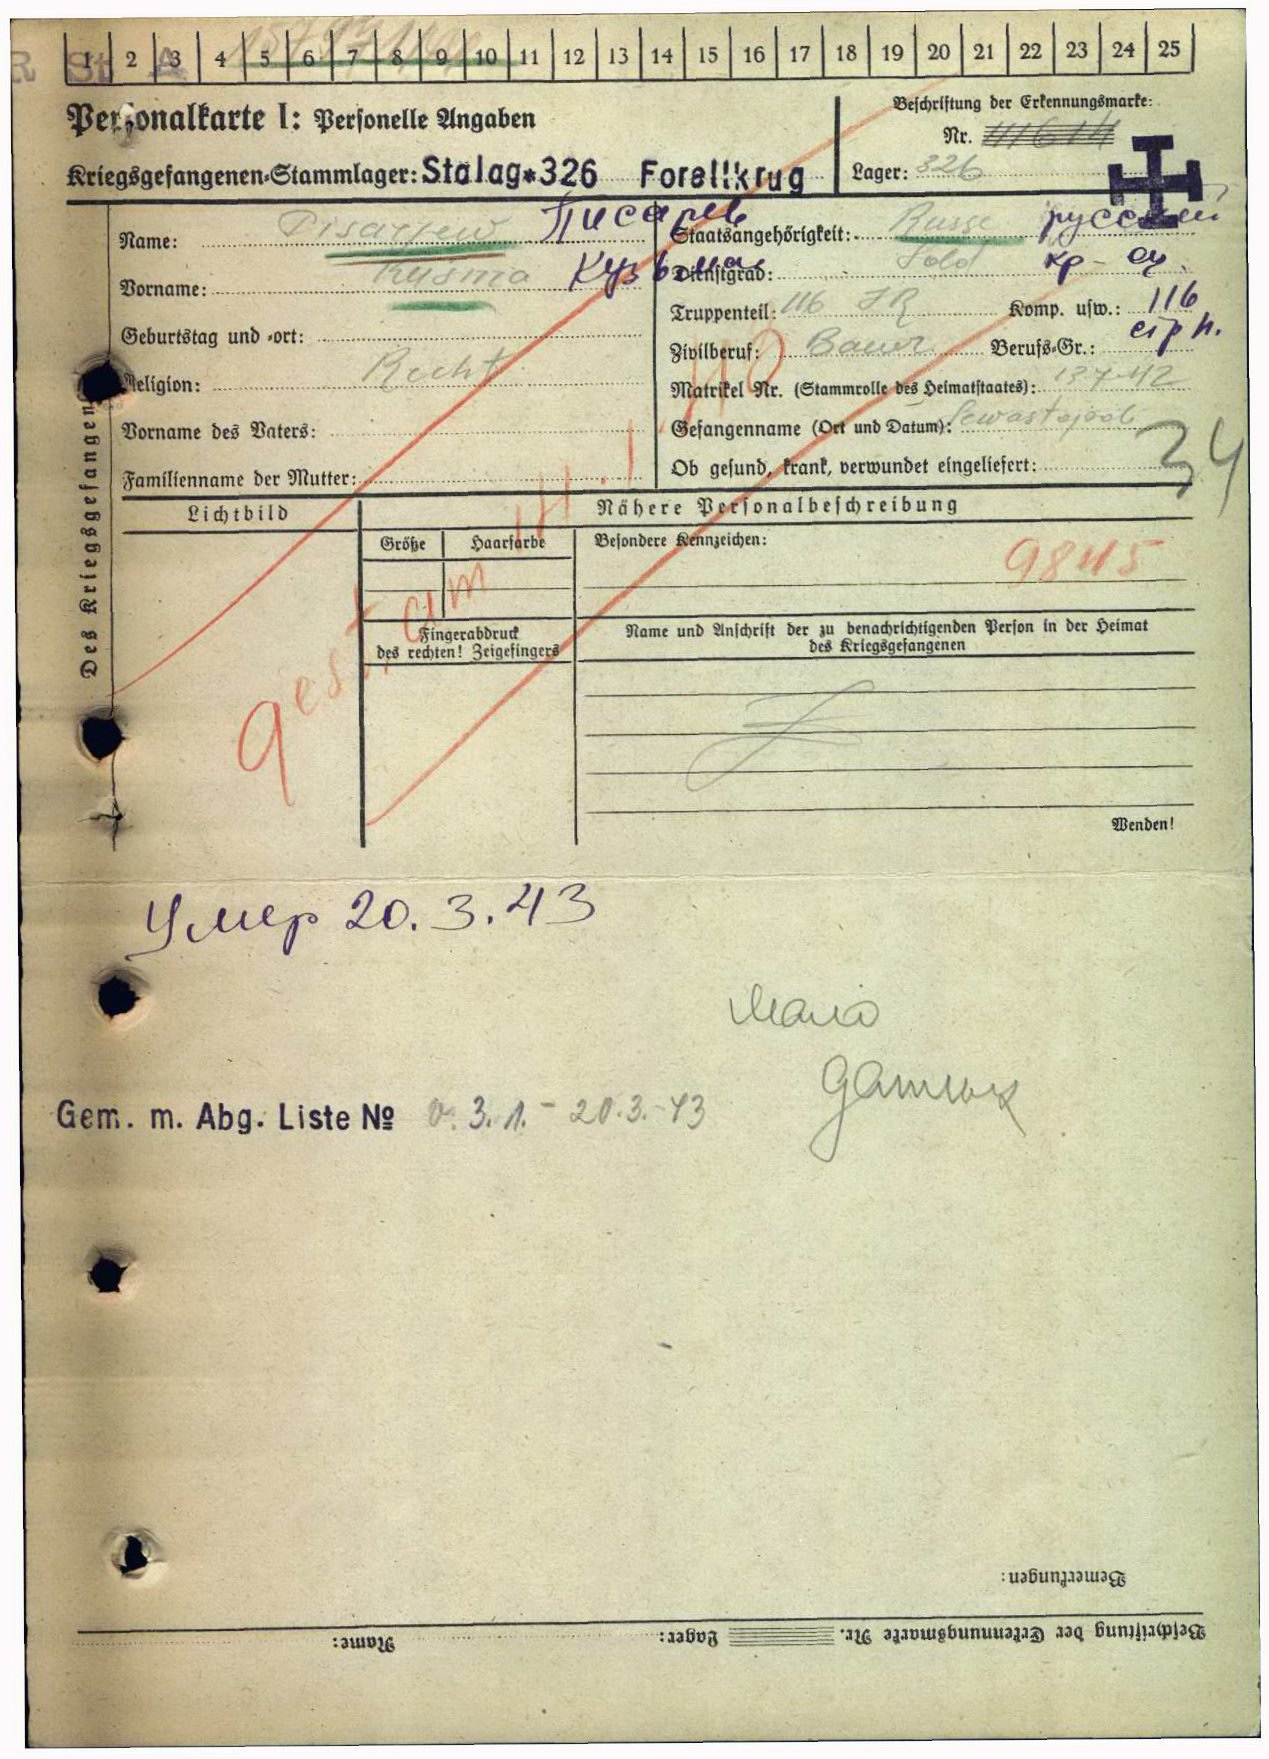 1 2 3 4 5 6 7 8 9 10 11 12 13 14 15 16 17 18 19 20 21 22 23 24 25
Personalkarte I: Personelle Angaben
Beschriftung der Erkennungsmarke:
Nr. 41614
Kriegsgefangenen-Stammlager: Stalag*326 Forellkrug
Lager: 326
Name: Pisarjew Писарев
Staatsangehörigkeit: Russe русский
Vorname: Kusma Кузьма
Dienstgrad: Sold кр-ец
Truppenteil: 116 IR Komp. usw.: 116
Geburtstag und -ort:
Zivilberuf: Bauer Berufs-Gr.: стр п.
Religion: Recht
Matrikel Nr. (Stammrolle des Heimatstaates):
Vorname des Vaters:
Gefangenname (Ort und Datum): Sewastopol
Familienname der Mutter:
Ob gesund, krank, verwundet eingeliefert:
34
Des Kriegsgefangenen
Lichtbild
Nähere Personalbeschreibung
Größe Haarfarbe
Besondere Kennzeichen:
9845
gest. am
Fingerabdruck
des rechten! Zeigefingers
Name und Anschrift der zu benachrichtigenden Person in der Heimat
des Kriegsgefangenen
Wenden!
Умер 20.3.43
Gem. m. Abg. Liste № v. 3.1.- 20.3.43
Bemerkungen:
Beschriftung der Erkennungsmarke Nr. Lager: Name: